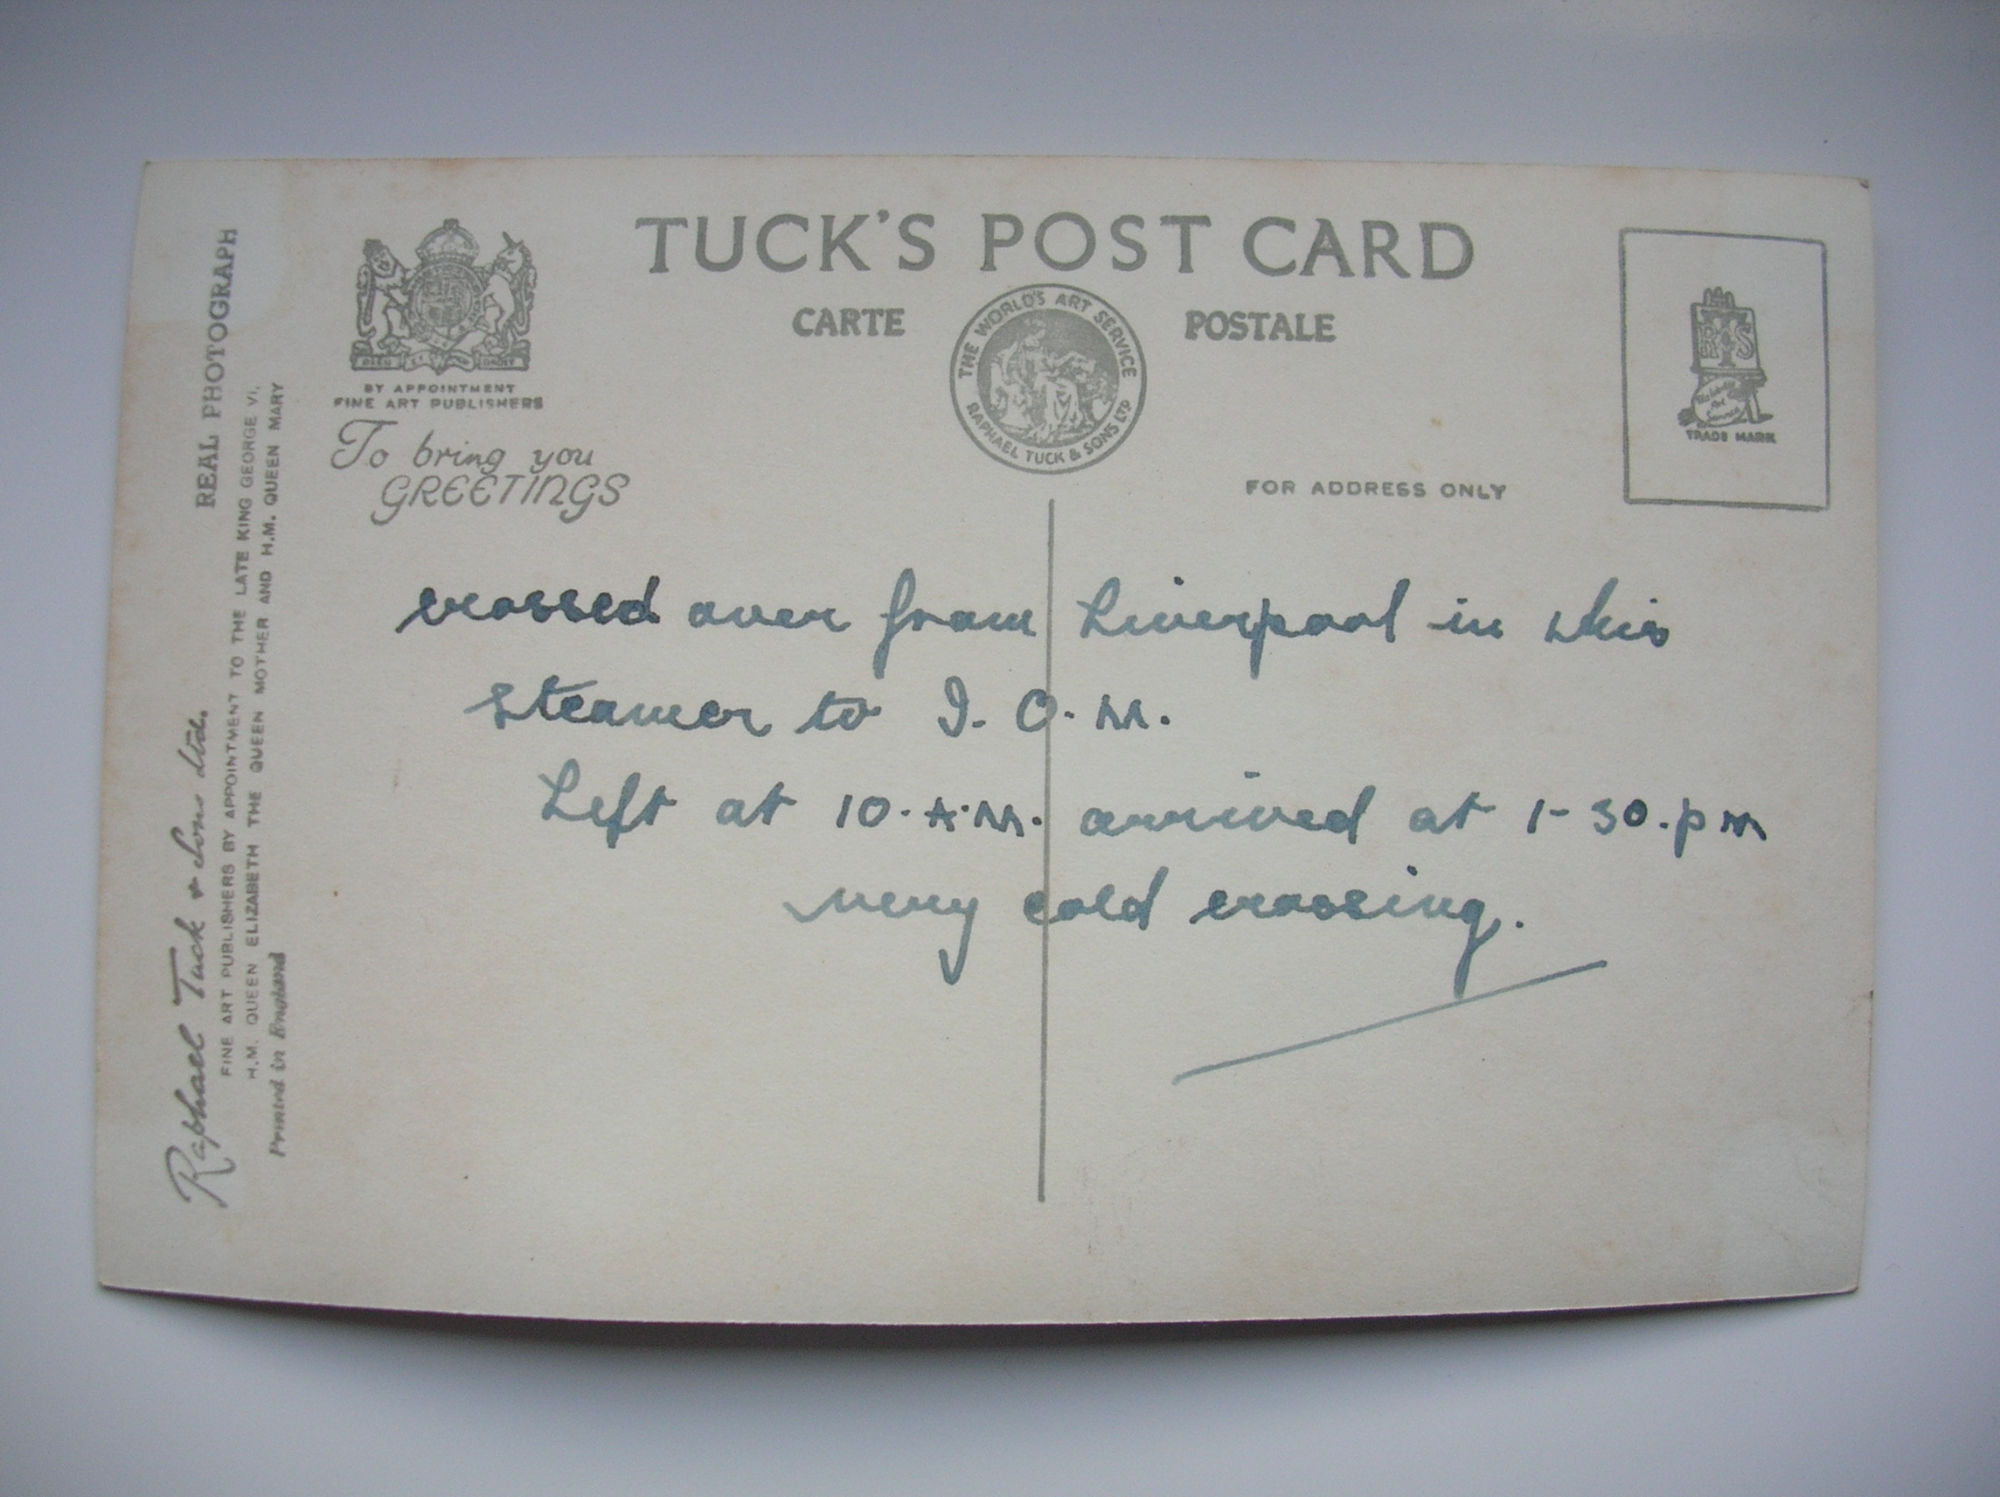 TUCK'S POST CARD
CARTE POSTALE
THE WORLD'S ART SERVICE
RAPHAEL TUCK & SONS LTD
BY APPOINTMENT
FINE ART PUBLISHERS
To bring you
GREETINGS
FOR ADDRESS ONLY
R T S
TRADE MARK
crossed over from Liverpool in this
steamer to I.O.M.
Left at 10.A.M. arrived at 1-30.pm
very cold crossing.
REAL PHOTOGRAPH
Raphael Tuck & Sons Ltd.
FINE ART PUBLISHERS BY APPOINTMENT TO THE LATE KING GEORGE VI,
H.M. QUEEN ELIZABETH THE QUEEN MOTHER AND H.M. QUEEN MARY
Printed in England